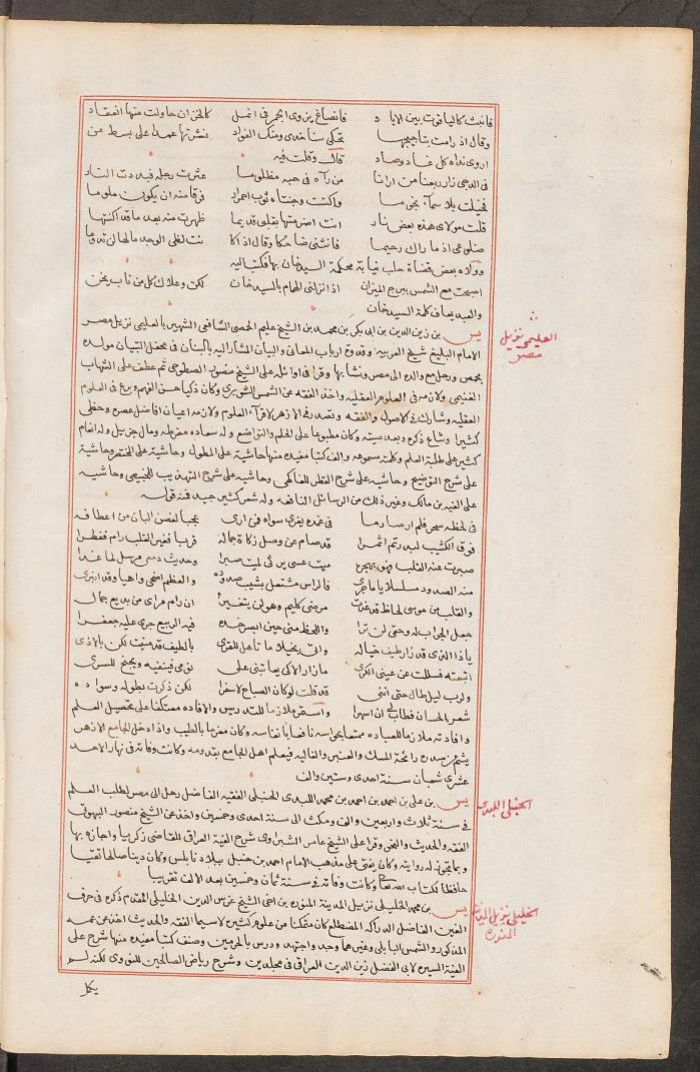 فانبث كالياقوت بين الايا د فانصاغ يزوى الجمر فى انمل كالخزان حاولت منها انعقاد
وقال اذ رامت بتاجيجها تحكى سنا خدى ومنك الفواد نشرتها عمدا على بسط من
اروى نداه كل غاد وصاد قال وقلت فيه
فى الدجى زار ربعنا من ارانا من رآه فى حبه مظلوما عثرت رجله فبددت النار
فخيلت بلا سماء نجوما واكتست وجنتاه ثوب احمرار فرقا منه ان يكون ملوما
قلت مولاى هذه بعض نار انت اضرمتها بقلبى قديما ظهرت منه بعد ما قد اكنتها
ضلوعى اذ ما راك رحيما فانثنى ضاحكا وقال اذ اكا نت لظى الوجد ما لها لن تدوما
وولاه بعض قضاة حلب نيابة محكمة السيد خان بها فكتب اليه
اصبحت مع الشمس ببرج الميزان اذ انزلنى الهمام بالسيد خان لكن وعلاك كل من ناب يخن
والعبد يعاف كلمة السيد خان
يس بن زين الدين بن ابى بكر بن محمد بن الشيخ عليم الحمصى الشافعى الشهير بالعليمى نزيل مصر
العليمى نزيل مصر
الامام البليغ شيخ العربيه وقدوة ارباب المعانى والبيان المشار اليه بالبنان فى محفل التبيان مولده
بحمص ورحل مع والده الى مصر ونشا بها وقرا فى اوائله على الشيخ منصور السطوحى ثم عطف على الشهاب
الغنيمى ولازمه فى العلوم العقليه واخذ الفقه عن الشمس الشوبرى وكان ذكيا حسن الفهم وبرع فى العلوم
العقليه وشارك فى الاصول والفقه وتصدر فى الازهر لاقرآء العلوم ولازمه اعيان افاضل عصره وحظى
كثيرا وشاع ذكره وبعد صيته وكان مطبوعا على الحلم والتواضع وله سعاده مفرطه ومال جزيل وله انعام
كثير على طلبة العلم وكلمته مسموعه والف كتبا مفيده منها حاشية على المطول وحاشية على المختصر وحاشية
على شرح التوضيح وحاشيه على شرح القطر للفاكهى وحاشيه على شرح التهذيب للخبيصى وحاشيه
على الفيه بن مالك وغير ذلك من الرسائل النافعه وله شعر كثير جيد فمنه قوله
فى لحظه سحر فلم ارصارما فى غمده يفرى سواه فى ارى عجبا لغصن البان من اعطافه
فوق الكثيب لبدر تم اثمرا قد صام عن وصل زكاة جماله قربا فغير القلب رام ففطرا
صبرت عنه القلب فهو بهجره ميت عسى يرثى لميت صبرا وحديث دمعى مرسل لما غدا
منه الصدود مسلسلا ياما جرى فالراس مشتعل بشيب صدوده والعظم اضحى واهيا وقد انبرى
والقلب من موسى لحاظ قد غدت مرضى كليم وهو لن يتغيرا ان رام مراى من بديع جمال
جعل الجواب له وحتى لن ترا واللحظ منى حين ابصر خده فيه الربيع جرى عليه جعفرا
يا ذا الذى قد زار طيف خياله وافى بخيلا ما تاهل للقرى بالطيف قد منيت لكن بالاذى
اتبعته فسللت عن عينى الكرى ما زار الا كى يعاتبنى على نومى فينفيه ويجنح للسرى
ولرب ليل طال حتى اننى قد قلت لو كان الصباح لاسفرا لكن ذكرت بطوله وسواده
شعر الحسان فطاب لى ان اسهرا واستمر ملازما للتدريس والافاده معتكفا على تحصيل العلم
وافادته ملازما للعباده ممتعا بحواسه نافعا بانفاسه وكان مغرما بالطيب واذا دخل الجامع الازهر
يشم من صدره رائحة المسك والعنبر والغاليه فيعلم اهل الجامع بقدومه وكانت وفاته فى نهار الاحد
عشرى شعبان سنة احدى وستين والف
يس بن على بن احمد بن احمد بن محمد اللبدى الحنبلى الفقيه الفاضل رحل الى مصر لطلب العلم
الحنبلى اللبدى
فى سنة ثلاث واربعين والف ومكث الى سنة احدى وخمسين واخذ عن الشيخ منصور البهوتى
الفقه والحديث والنحو وقرا على الشيخ عامر الشبراوى شرح الفية العراقى للقاضى زكريا واجازه بها
وبما تجوز له روايته وكان يفتى على مذهب الامام احمد بن حنبل ببلاد نابلس وكان دينا صالحا تقيا
حافظا لكتاب الله تعالى وكانت وفاته فى سنة ثمان وخمسين بعد الالف تقريبا
يس بن محمد الخليلى نزيل المدينة المنوره بن اخى الشيخ غرس الدين الخليلى المقدم ذكره فى حرف
الخليلى نزيل المدينة المنوره
الغين الفاضل الدراكه المضطلع كان متمكنا من علوم كثيره لا سيما الفقه والحديث اخذ عن عمه
المذكور والشمس البابلى وغيرهما وجد واجتهد ودرس بالحرمين وصنف كتبا مفيده منها شرح على
الفية السيره لابى الفضل زين الدين العراقى فى مجلدين وشرح رياض الصالحين للنووى لكنه لم
يكمل